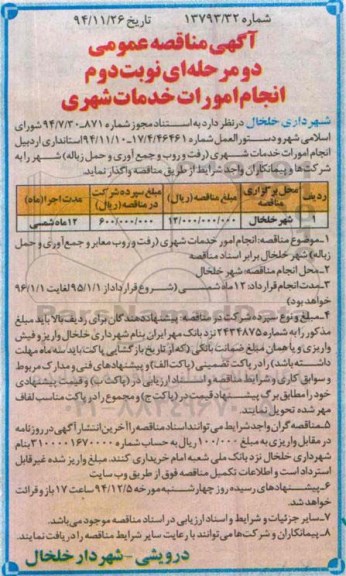 شماره ۱۳۷۹۳/۳۲ تاریخ ۹۴/۱۱/۲۶
آگهی مناقصه عمومی
دو مرحله‌ای نوبت دوم
انجام امورات خدمات شهری
شهرداری خلخال در نظر دارد به استناد مجوز شماره ۸۷۱-۹۴/۷/۳۰ شورای
اسلامی شهر و دستورالعمل شماره ۱۷/۴/۴۶۴۶۱-۹۴/۱۱/۱۰ استانداری اردبیل
انجام امورات خدمات شهری (رفت و روب و جمع آوری و حمل زباله) شهر را به
شرکت‌ها و پیمانکاران واجد شرایط از طریق مناقصه واگذار نماید.
ردیف محل برگزاری مناقصه مبلغ مناقصه (ریال) مبلغ سپرده شرکت در مناقصه (ریال) مدت اجرا (ماه)
۱ شهر خلخال ۱۲/۰۰۰/۰۰۰/۰۰۰ ۶۰۰/۰۰۰/۰۰۰ ۱۲ ماه شمسی
۱-موضوع مناقصه: انجام امور خدمات شهری (رفت و روب معابر و جمع آوری و حمل
زباله) شهر خلخال برابر اسناد مناقصه
۲-محل انجام مناقصه: شهر خلخال
۳-مدت انجام قرارداد: ۱۲ ماه شمسی (شروع قرارداد از ۹۵/۱/۱ لغایت ۹۶/۱/۱
خواهد بود)
۴-مبلغ و نوع سپرده شرکت در مناقصه: پیشنهاد دهندگان برای ردیف بالا باید مبلغ
مذکور را به شماره ۲۴۳۴۸۷۵ نزد بانک مهر ایران بنام شهرداری خلخال واریز و فیش
واریزی و یا همان مبلغ ضمانت بانکی (که از تاریخ بازگشایی پاکت باید سه ماه مهلت
داشته باشد) را در پاکت تضمینی (پاکت الف) و پیشنهادهای فنی و مدارک مربوط
و سوابق کاری و شرایط مناقصه و اسناد ارزیابی در (پاکت ب) و قیمت پیشنهادی
خود را مطابق برگ پیشنهاد قیمت در (پاکت ج) و مجموع را در پاکت مناسب لفاف
مهر شده تحویل نمایند.
۵-مناقصه گران واجد شرایط می‌توانند اسناد مناقصه را آخرین انتشار آگهی در روزنامه
در مقابل واریزی به مبلغ ۱۰۰/۰۰۰ ریال به حساب شماره ۳۱۰۰۰۰۱۶۷۰۰۰۰ بنام
شهرداری خلخال نزد بانک ملی شعبه امام خریداری کنند. مبلغ واریز شده غیر قابل
استرداد است و اطلاعات تکمیل مناقصه فوق از طریق وب سایت
۶-پیشنهادهای رسیده روز چهارشنبه مورخه ۹۴/۱۲/۵ ساعت ۱۷ باز و قرائت
خواهد شد.
۷-سایر جزئیات و شرایط و اسناد ارزیابی در اسناد مناقصه موجود می‌باشد.
۸-پیمانکاران و شرکت‌ها می‌توانند با رعایت سایر شرایط مناقصه را دریافت نمایند.
درویشی - شهردار خلخال